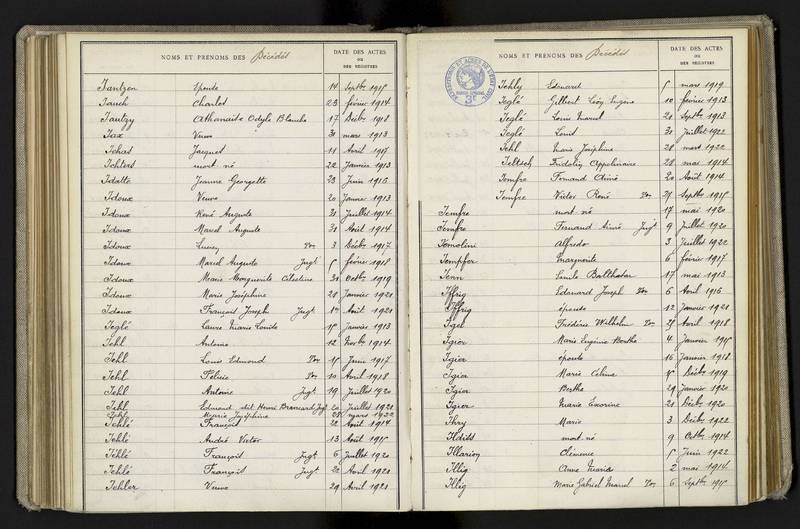 NOMS ET PRÉNOMS DES Décédés
DATE DES ACTES
OU
DES REGISTRES
Jantzen Epouse 14 Septbre 1915
Jauch Charlot 23 février 1914
Jautzy Athanaise Odyle Blanche 17 Décbre 1918
Jax Veuve 31 mars 1913
Jchas Jacquet 11 Avril 1915
Jchters mort-né 22 Janvier 1913
Jdatte Jeanne Georgette 23 Juin 1916
Jdoux Veuve 20 Janvier 1913
Jdoux René Auguste 21 Juillet 1914
Jdoux Marcel Auguste 31 Août 1914
Jdoux Lucien Von 3 Décbre 1917
Jdoux Marcel Auguste Jugt 5 février 1918
Jdoux Marie Marguerite Célestine 30 Octbre 1919
Jdoux Marie Joséphine 28 Janvier 1920
Jdoux François Joseph Jugt 10 Août 1920
Jeglé Laure Marie Louise 15 Janvier 1913
Jehl Antoine 12 Novbre 1914
Jehl Louis Edmond Von 15 Juin 1917
Jehl Félicie Von 10 Avril 1918
Jehl Antoine Jugt 19 Juillet 1920
Jehl Edmond dit Henri Brancard Jugt 20 Juillet 1921
Jehl Marie Joséphine 28 mars 1922
Jehlé François 22 Août 1914
Jehlé André Victor 13 Août 1915
Jehlé François Jugt 6 Juillet 1920
Jehlé François Jugt 22 Avril 1920
Jehler Veuve 29 Avril 1921
NOMS ET PRÉNOMS DES Décédés
DATE DES ACTES
OU
DES REGISTRES
Jehly Edouard 5 mars 1919
Jeglé Gilbert Léon Eugène 10 février 1913
Jeglé Louis Marcel 21 Septbre 1913
Jeglé Louis 31 Juillet 1922
Jehl Marie Joséphine 28 mars 1922
Jeltsch Fridolin Appolinaire 28 mai 1914
Jemfre Fernand Aimé 20 Août 1914
Jemfre Victor René Von 25 Septbre 1915
Jemfre mort-né 17 mai 1920
Jemfre Fernand Aimé Jugt 9 Juillet 1920
Jemolini Alfredo 3 Juillet 1922
Jempfer Marguerite 6 février 1917
Jenn Emile Balthazar 17 mai 1913
Jffrig Edouard Joseph Von 6 Avril 1916
Jffrig épouse 12 Janvier 1921
Jgel Frédéric Wilhelm Von 25 Avril 1918
Jgier Marie Eugénie Berthe 4 Janvier 1915
Jgier épouse 16 Janvier 1918
Jgier Marie Céline 5 Décbre 1919
Jgier Berthe 29 Janvier 1920
Jgier Marie 21 Décbre 1920
Jhry Marie 3 Décbre 1922
Jhdits mort-né 9 Octbre 1914
Jllarion Clémence 5 Juin 1922
Jllig Anne Maria 2 mai 1914
Jllig Marie Gabriel Marcel Von 6 Septbre 1915